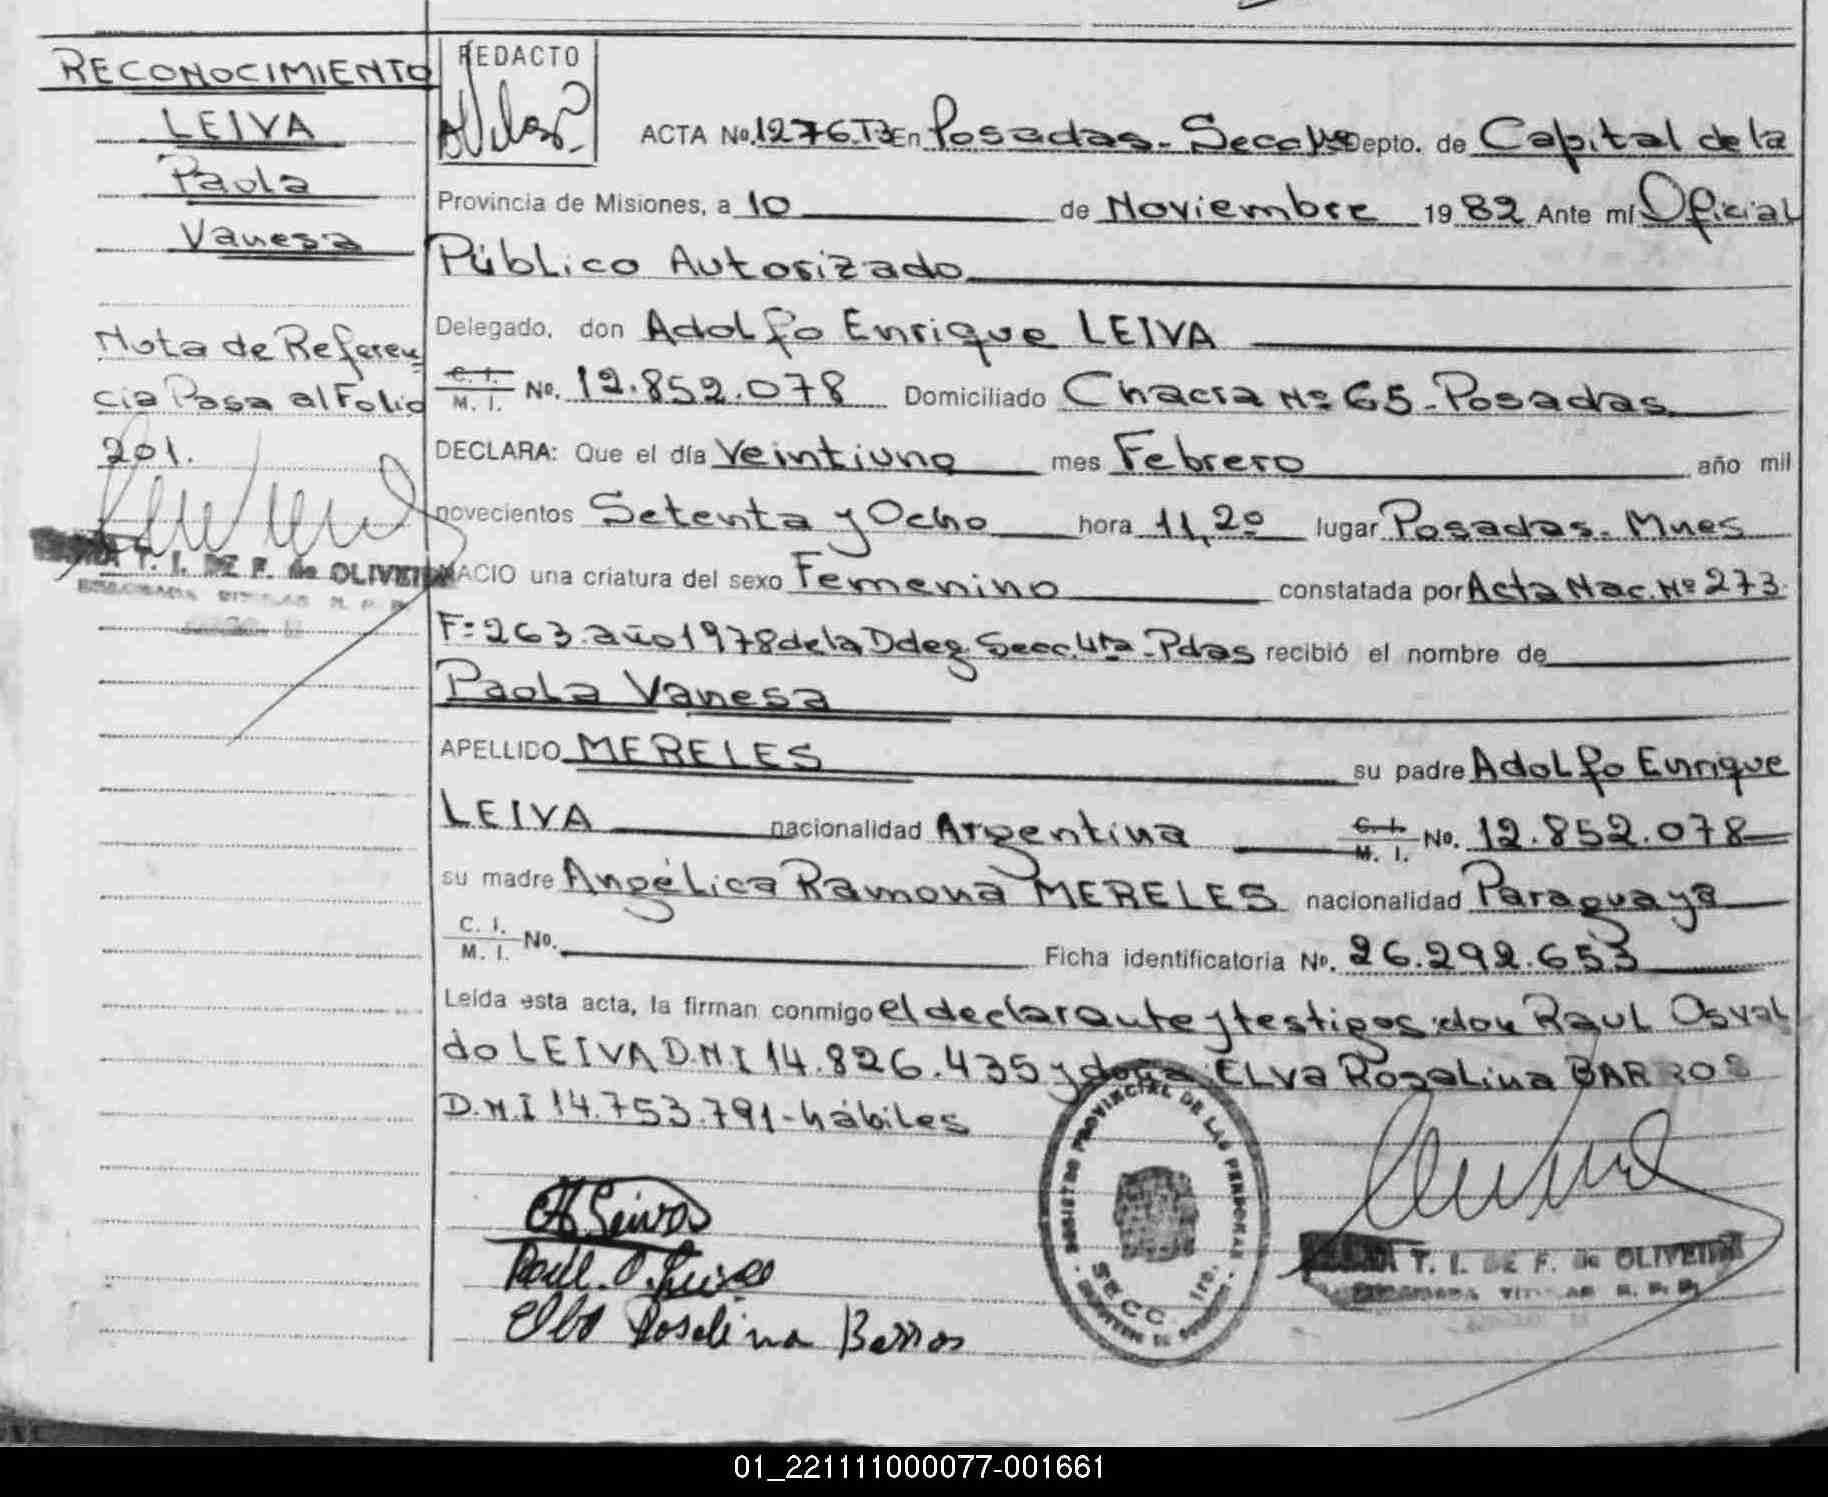 RECONOCIMIENTO
LEIVA
Paola
Vanesa
Nota de Referen
cia Pasa al Folio
201.
T. I. DE F. de OLIVEIRA
REDACTO
ACTA No. 1276.T3 En Posadas.- Secc 1ra Depto. de Capital de la
Provincia de Misiones, a 10 de Noviembre 1982 Ante mí Oficial
Público Autorizado
Delegado, don Adolfo Enrique LEIVA
C. I. M. I. No. 12.852.078 Domiciliado Chacra Nº 65-Posadas
DECLARA: Que el día Veintiuno mes Febrero año mil
novecientos Setenta y Ocho hora 11,20 lugar Posadas. Mnes
NACIO una criatura del sexo Femenino constatada por Acta Nac. Nº 273
Fº 263 año 1978 de la Ddeg. Secc. 4ta - Pdas recibió el nombre de
Paola Vanesa
APELLIDO MERELES su padre Adolfo Enrique
LEIVA nacionalidad Argentina C. I. M. I. No. 12.852.078
su madre Angélica Ramona MERELES nacionalidad Paraguaya
C. I. M. I. No. Ficha identificatoria No. 26.292.653
Leída esta acta, la firman conmigo el declarante y testigos: don Raul Osval
do LEIVA D.N.I 14.826.435 y doña ELVa Rosalina BARROS
D.N.I 14.753.791-hábiles
REGISTRO PROVINCIAL DE LAS PERSONAS
SECC. 1ra.
Raul. O. Leiva
Elba Rosalina Barros
T. I. DE F. de OLIVEIRA
01_221111000077-001661